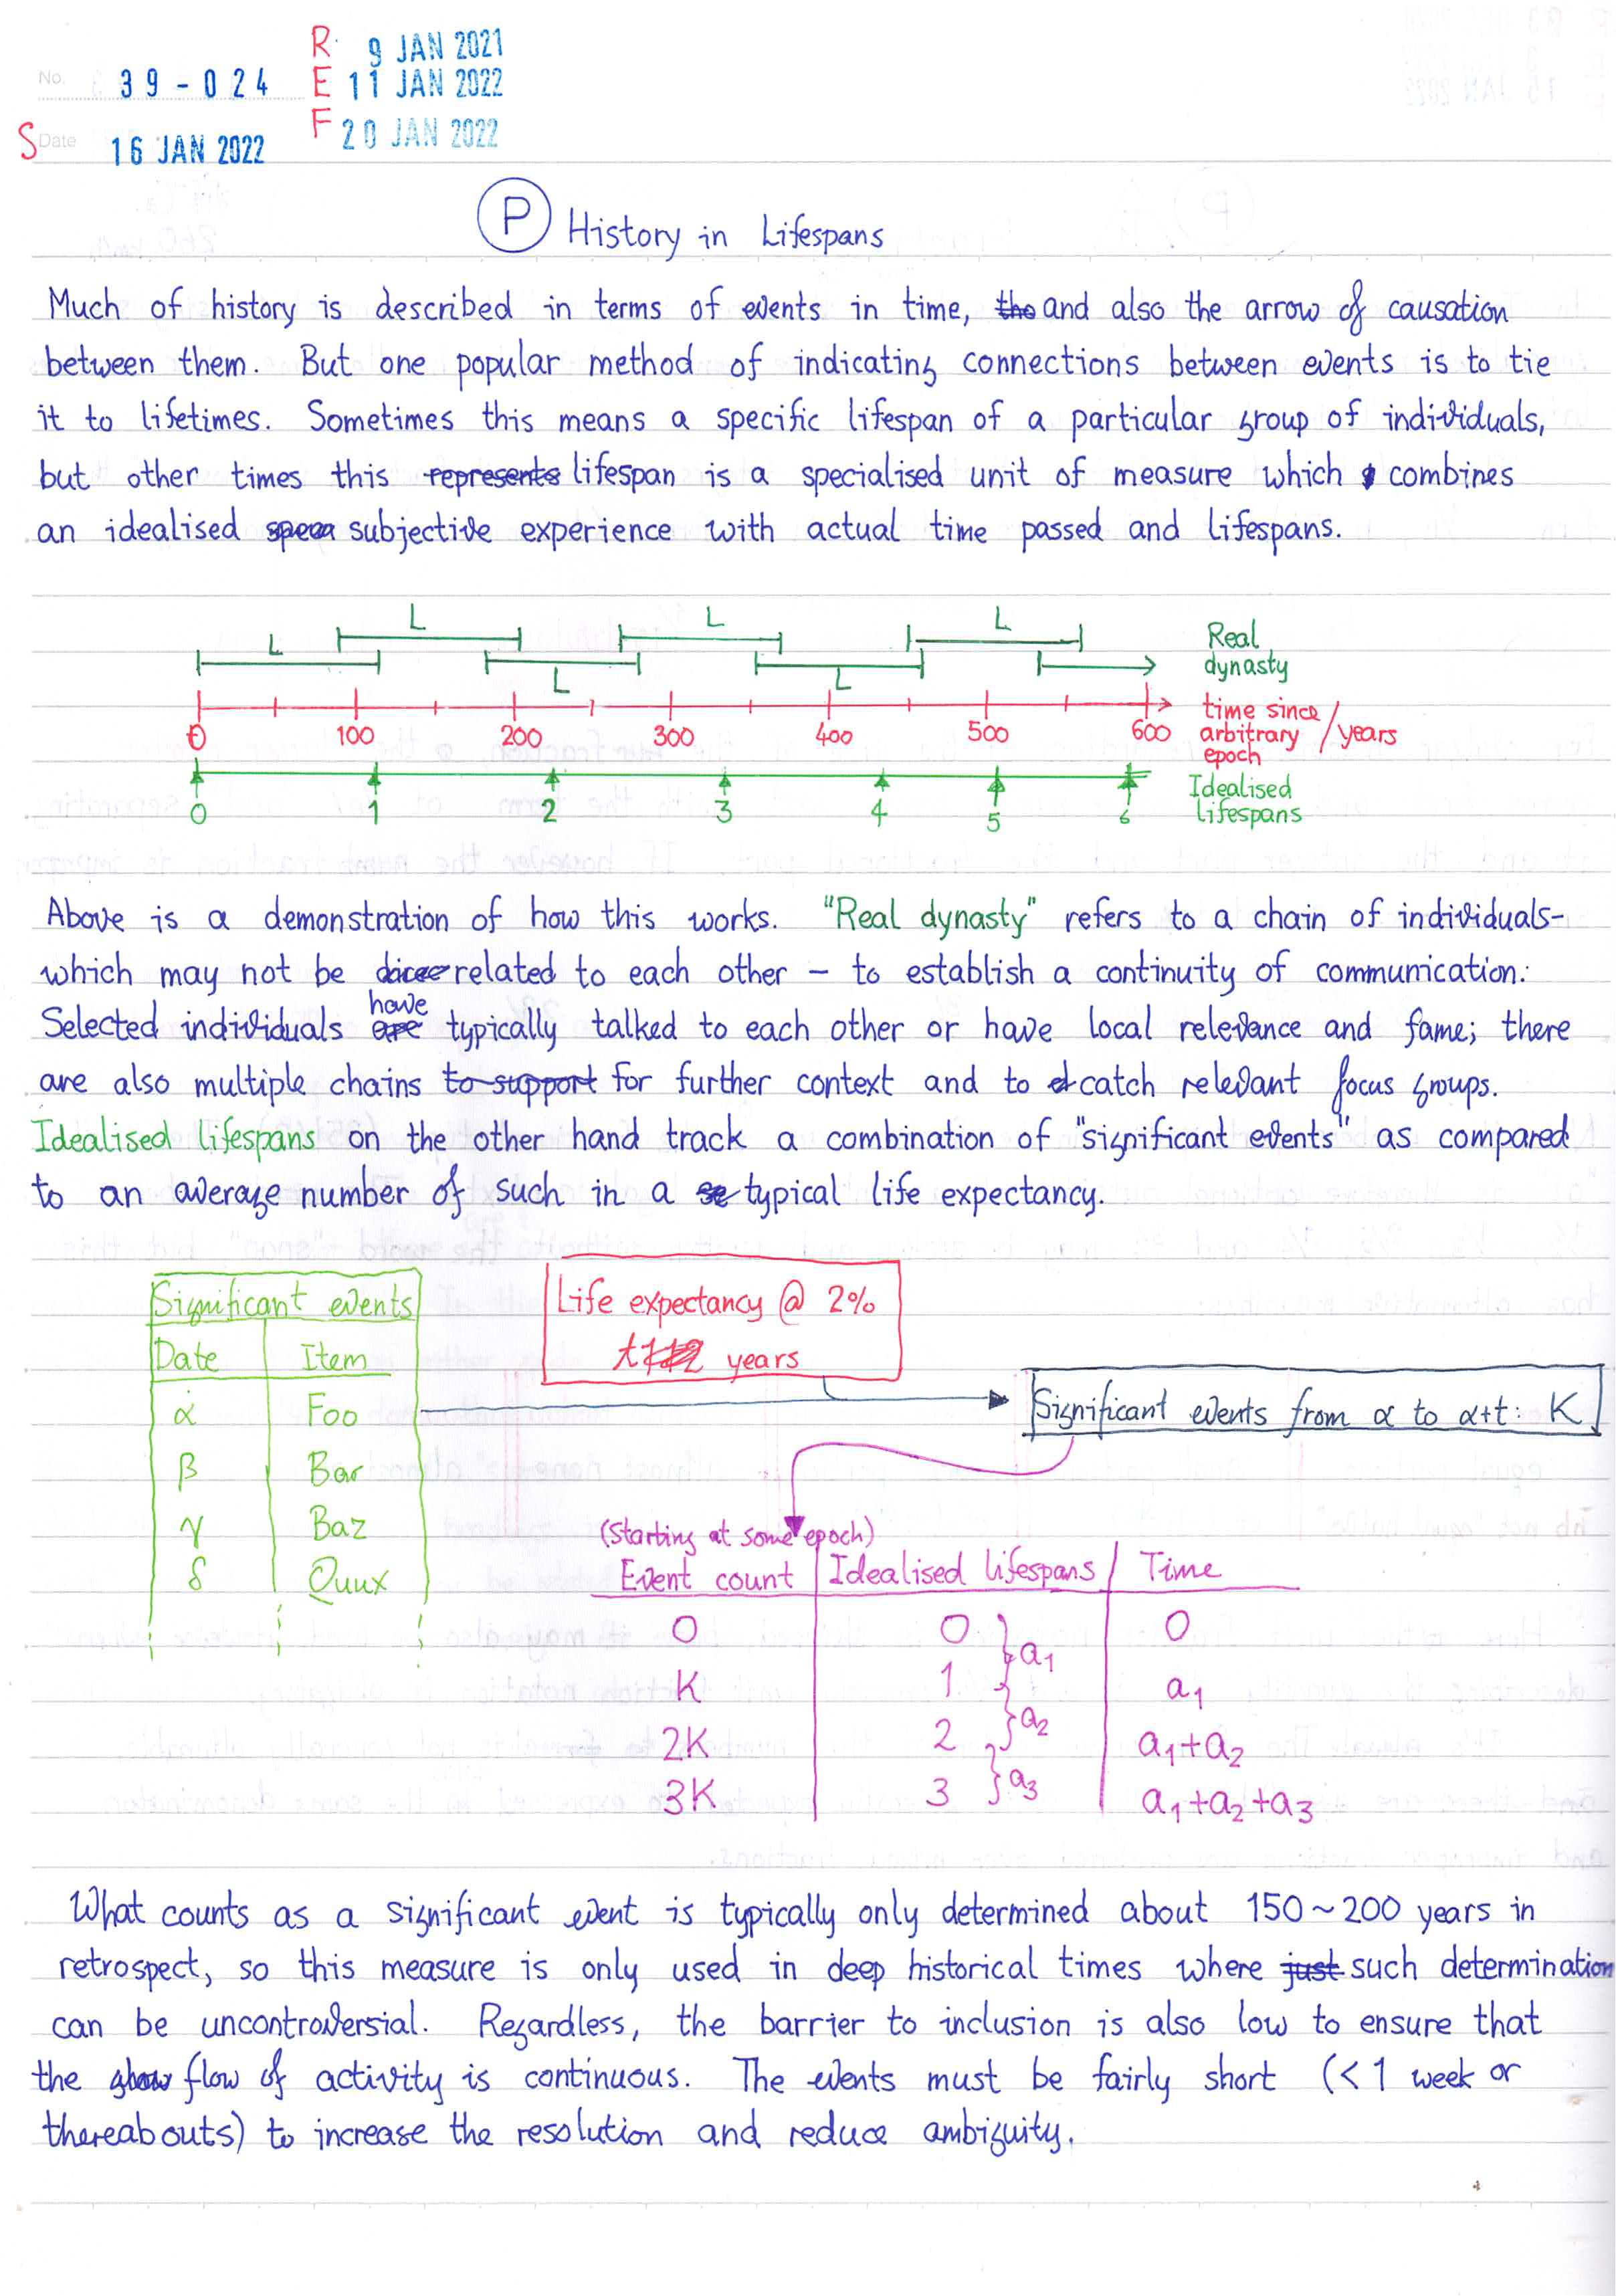 R 9 JAN 2021
No. 39-024 E 11 JAN 2022
F 20 JAN 2022
S Date 16 JAN 2022
P History in Lifespans
Much of history is described in terms of events in time, the and also the arrow of causation
between them. But one popular method of indicating connections between events is to tie
it to lifetimes. Sometimes this means a specific lifespan of a particular group of individuals,
but other times this represents lifespan is a specialised unit of measure which combines
an idealised subjective experience with actual time passed and lifespans.
L L L L L L Real
dynasty
0 100 200 300 400 500 600 time since
arbitrary / years
epoch
0 1 2 3 4 5 6 Idealised
lifespans
Above is a demonstration of how this works. "Real dynasty" refers to a chain of individuals-
which may not be related to each other – to establish a continuity of communication.
have
Selected individuals are typically talked to each other or have local relevance and fame; there
are also multiple chains to support for further context and to catch relevant focus groups.
Idealised lifespans on the other hand track a combination of "significant events" as compared
to an average number of such in a se typical life expectancy.
Significant events
Date Item
α Foo
β Bar
γ Baz
δ Quux
Life expectancy @ 2%
t years
Significant events from α to α+t: K
(Starting at some epoch)
Event count Idealised lifespans Time
0 0 0
a1
K 1 a1
a2
2K 2 a1+a2
a3
3K 3 a1+a2+a3
What counts as a significant event is typically only determined about 150~200 years in
retrospect, so this measure is only used in deep historical times where just such determination
can be uncontroversial. Regardless, the barrier to inclusion is also low to ensure that
the flow of activity is continuous. The events must be fairly short (<1 week or
thereabouts) to increase the resolution and reduce ambiguity.